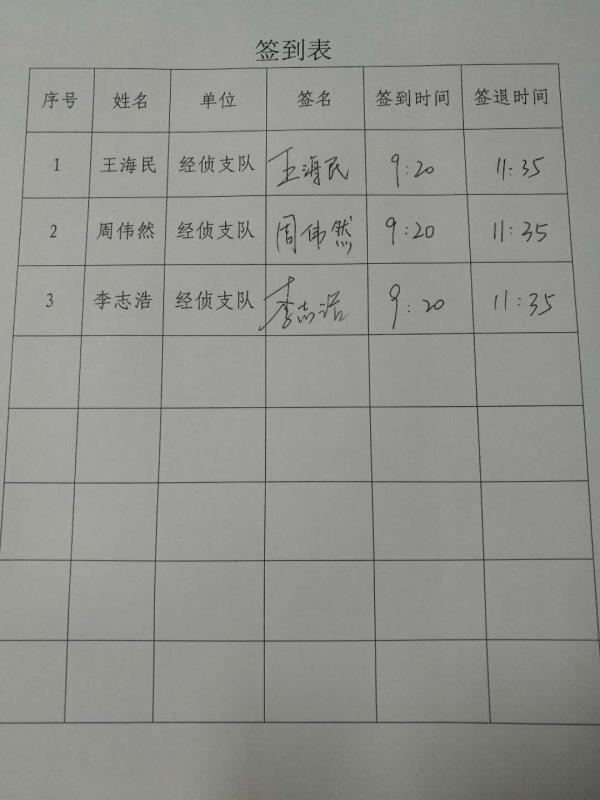 签到表
序号 姓名 单位 签名 签到时间 签退时间
1 王海民 经侦支队 王海民 9:20 11:35
2 周伟然 经侦支队 周伟然 9:20 11:35
3 李志浩 经侦支队 李志浩 9:20 11:35